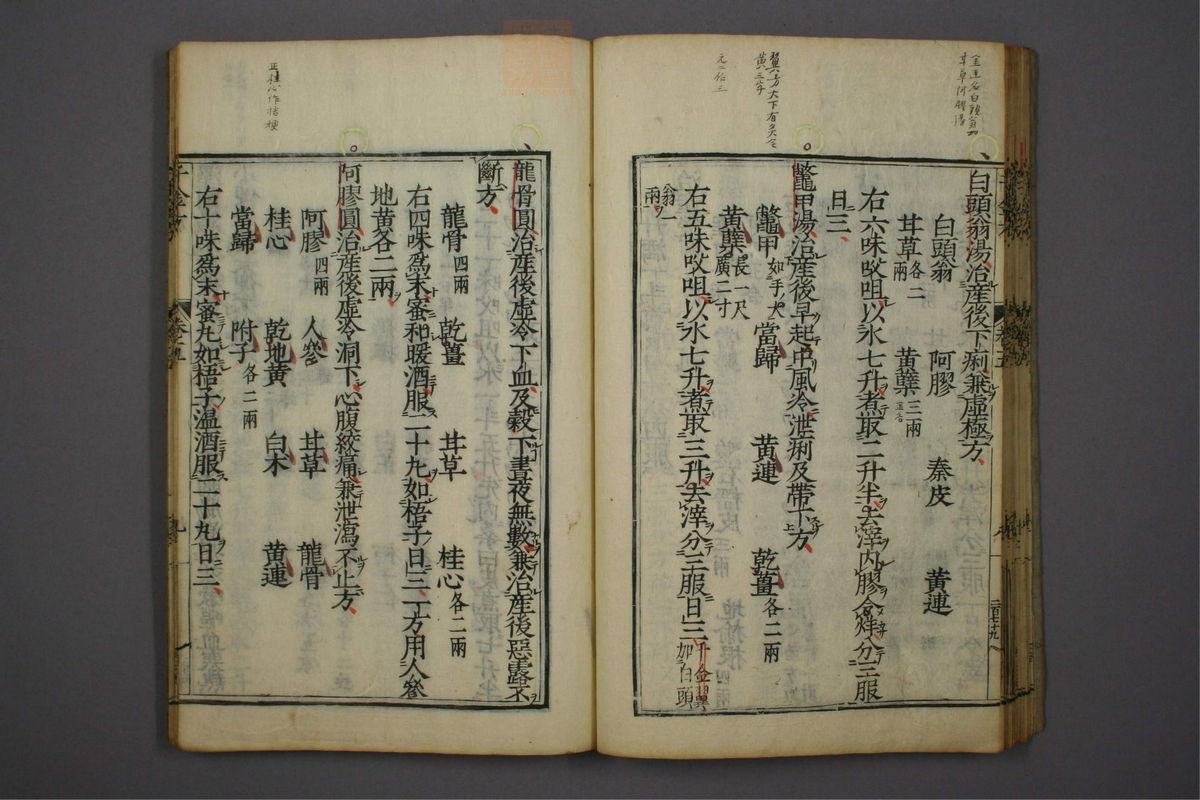 白頭翁湯治產後下痢兼虛極方
白頭翁　阿膠　秦皮　黃連
甘草各二兩　黃蘗三兩
右六味㕮咀以水七升煮取二升半去滓內膠令烊分三服
日三
鼈甲湯治產後早起中風冷泄痢及帶下方
鼈甲如手大　當歸　黃連　乾薑各二兩
黃蘗長一尺廣二寸
右五味㕮咀以水七升煮取三升去滓分三服日三千金翼加白頭
翁一兩
龍骨圓治產後虛冷下血及穀下晝夜無數兼治產後惡露不
斷方
龍骨四兩　乾薑　甘草　桂心各二兩
右四味爲末蜜和暖酒服二十丸如梧子日三一方用人參
地黃各二兩
阿膠圓治產後虛冷洞下心腹絞痛兼泄瀉不止方
阿膠四兩　人參　甘草　龍骨
桂心　乾地黃　白朮　黃連
當歸　附子各二兩
右十味爲末蜜丸如梧子溫酒服二十丸日三
翼方大下有灸令
黃三字
元二作三
正桂心作桔梗
二百七十九